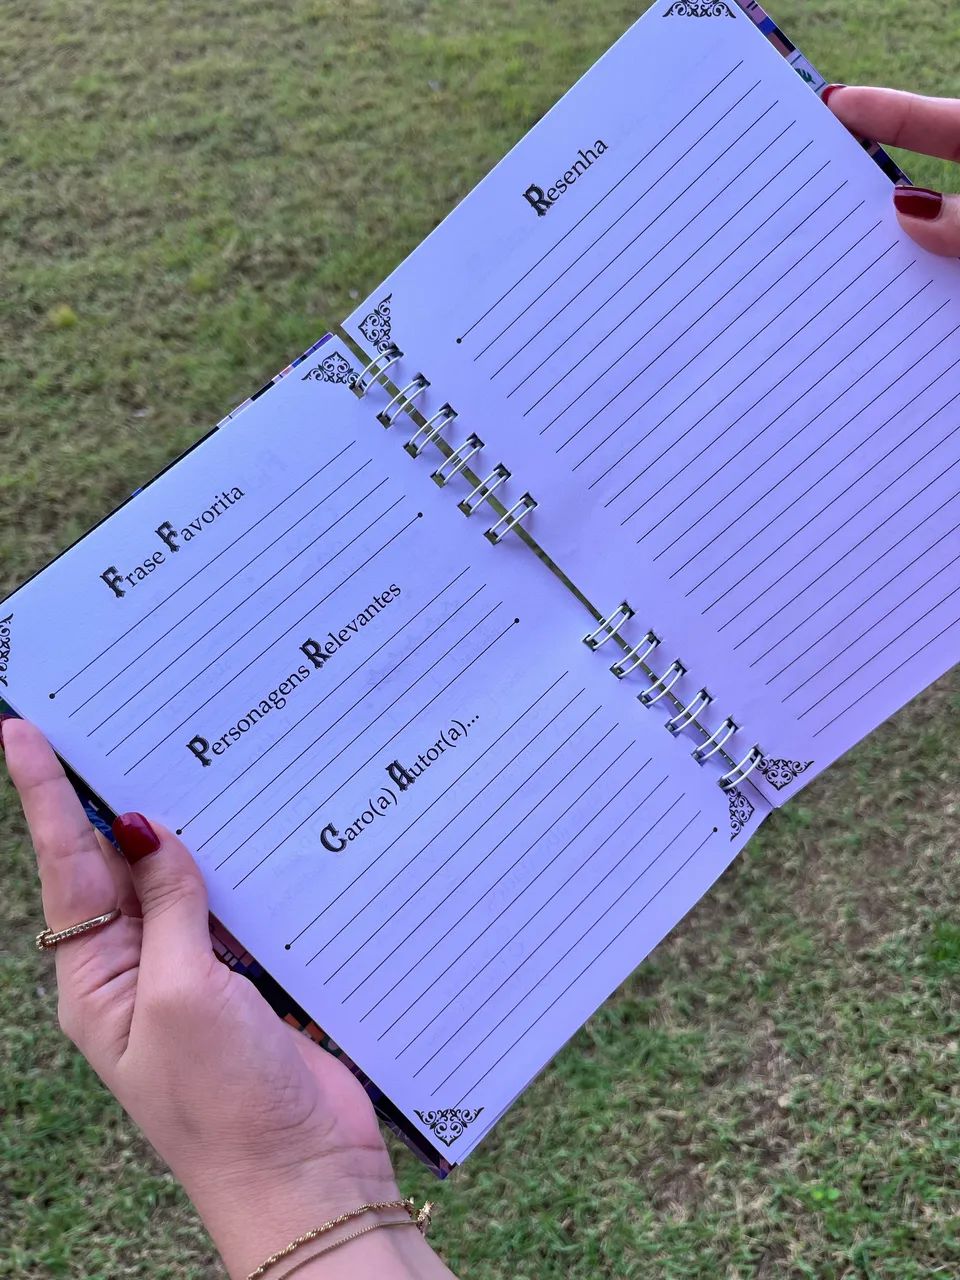 Frase Favorita
Personagens Relevantes
Caro(a) Autor(a)...
Resenha